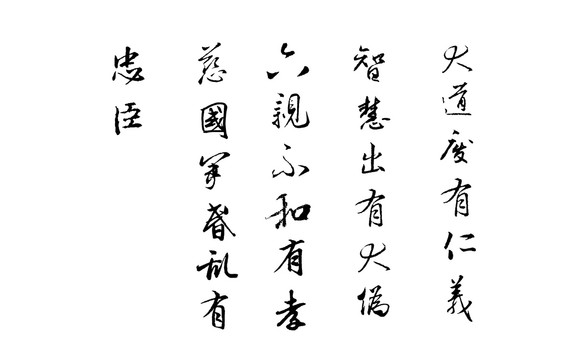 大道廢有仁義
智慧出有大偽
六親不和有孝
慈國家昬乱有
忠臣